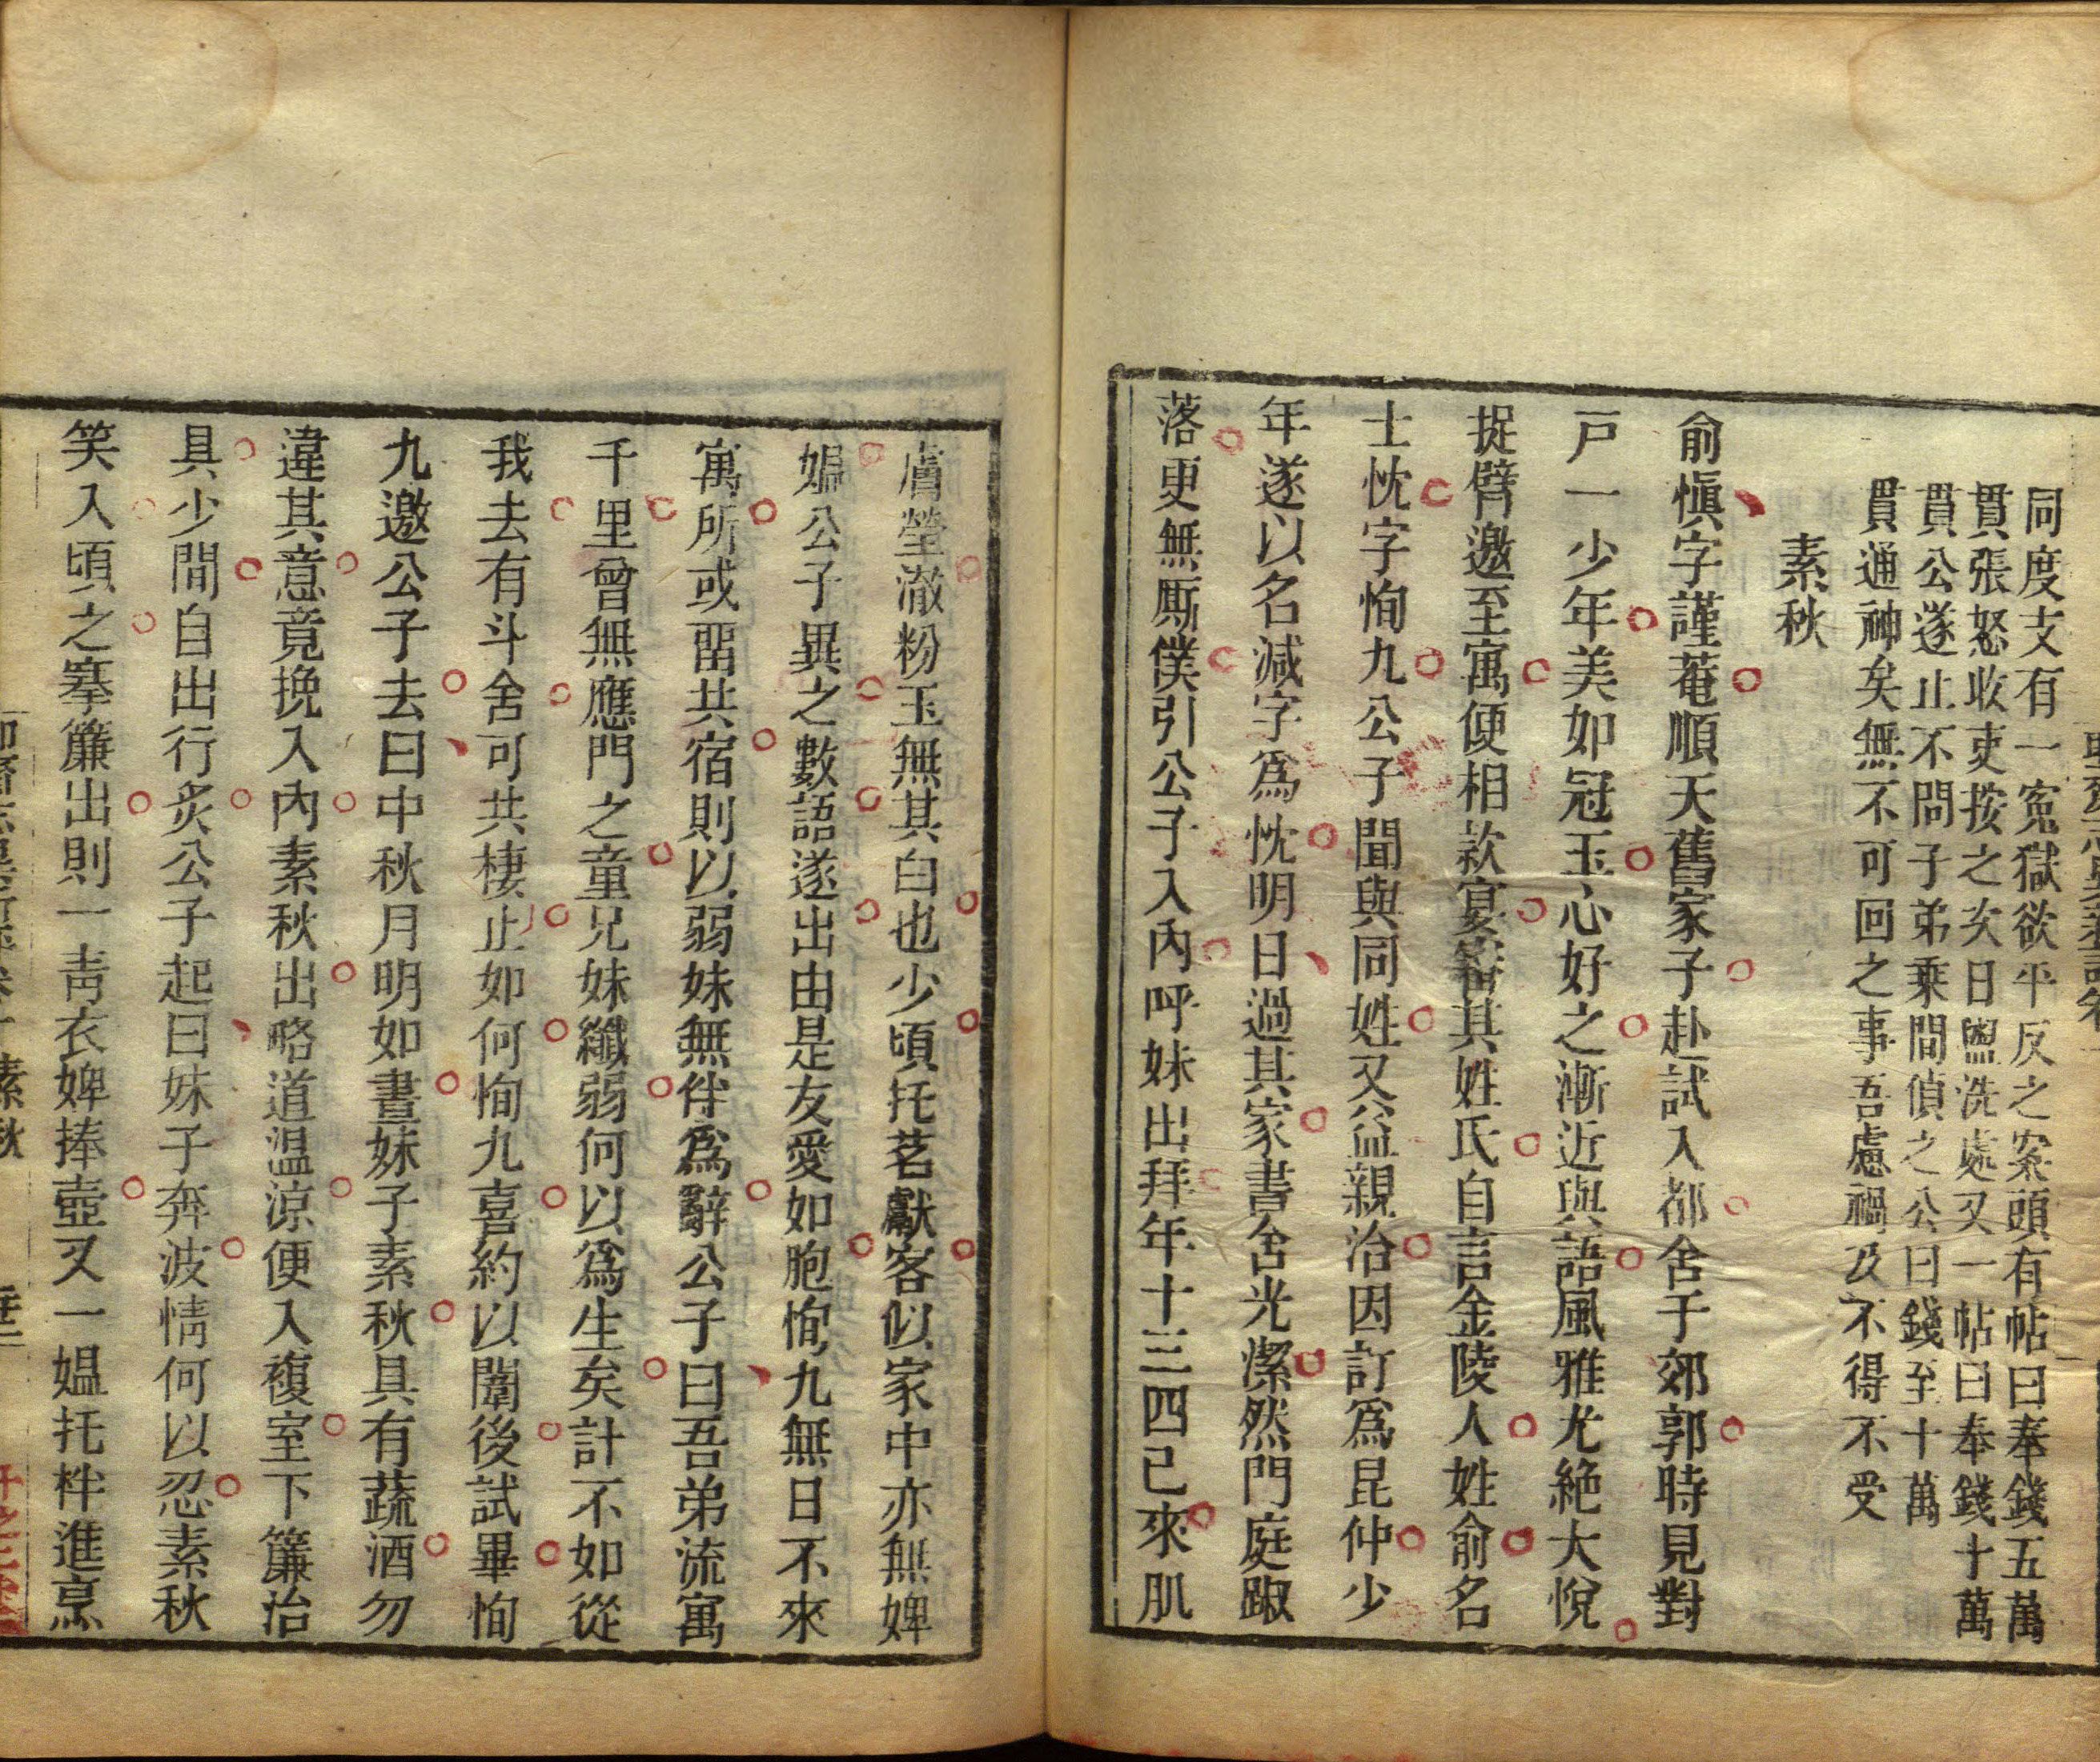 同度支有一寃獄欲平反之案頭有帖曰奉錢五萬
貫張怒收吏按之次日盥洗處又一帖曰奉錢十萬
貫公遂止不問子弟乘間偵之公曰錢至十萬
貫通神矣無不可回之事吾慮禍及不得不受
素秋
俞愼字謹菴順天舊家子赴試入都舍于郊郭時見對
戸一少年美如冠玉心好之漸近與語風雅尤絶大悅
捉臂邀至寓便相款宴審其姓氏自言金陵人姓俞名
士忱字恂九公子聞與同姓又益親洽因訂爲昆仲少
年遂以名减字爲忱明日過其家書舍光潔然門庭踧
落更無厮僕引公子入內呼妹出拜年十三四已來肌
膚瑩澈粉玉無其白也少頃托茗獻客似家中亦無婢
媼公子異之數語遂出由是友愛如胞恂九無日不來
寓所或畱共宿則以弱妹無伴爲辭公子曰吾弟流寓
千里曾無應門之童兄妹纖弱何以爲生矣計不如從
我去有斗舍可共棲止如何恂九喜約以闈後試畢恂
九邀公子去曰中秋月明如晝妹子素秋具有蔬酒勿
違其意竟挽入內素秋出略道温凉便入複室下簾治
具少間自出行炙公子起曰妹子奔波情何以忍素秋
笑入頃之搴簾出則一靑衣婢捧壺又一媼托柈進烹
素秋